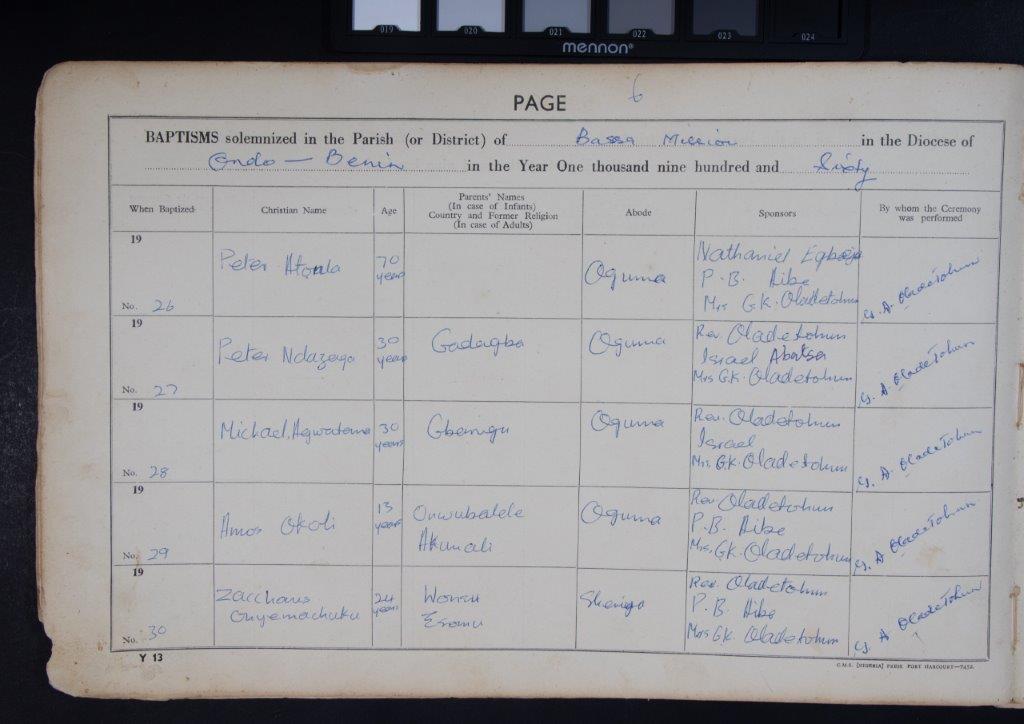 019 020 021 022 023 024
mennon®
PAGE 6
BAPTISMS solemnized in the Parish (or District) of Bassa Mission in the Diocese of
Ondo — Benin in the Year One thousand nine hundred and Sixty
When Baptized
Christian Name
Age
Parents' Names
(In case of Infants)
Country and Former Religion
(In case of Adults)
Abode
Sponsors
By whom the Ceremony
was performed
19
No. 26
Peter
70
years
Oguma
Nathaniel
P. B. Aibe
Mrs G.K. Oladetohun
G. A. Oladetohun
19
No. 27
Peter Ndazaga
30
years
Gadagba
Oguma
Rev. Oladetohun
Israel Abatsa
Mrs G.K. Oladetohun
G. A. Oladetohun
19
No. 28
Michael
30
years
Oguma
Rev. Oladetohun
Israel
Mrs. G.K. Oladetohun
G. A. Oladetohun
19
No. 29
Amos Okoli
13
years
Onwubalele
Akunali
Oguma
Rev. Oladetohun
P.B. Aibe
Mrs. G.K. Oladetohun
G. A Oladetohun
19
No. 30
Zacchaus
Onyemachuku
24
years
Shenga
Rev. Oladetohun
P. B. Aibe
Mrs G.K. Oladetohun
G. A Oladetohun
Y 13
C.M.S. (NIGERIA) PRESS PORT HARCOURT—7452.